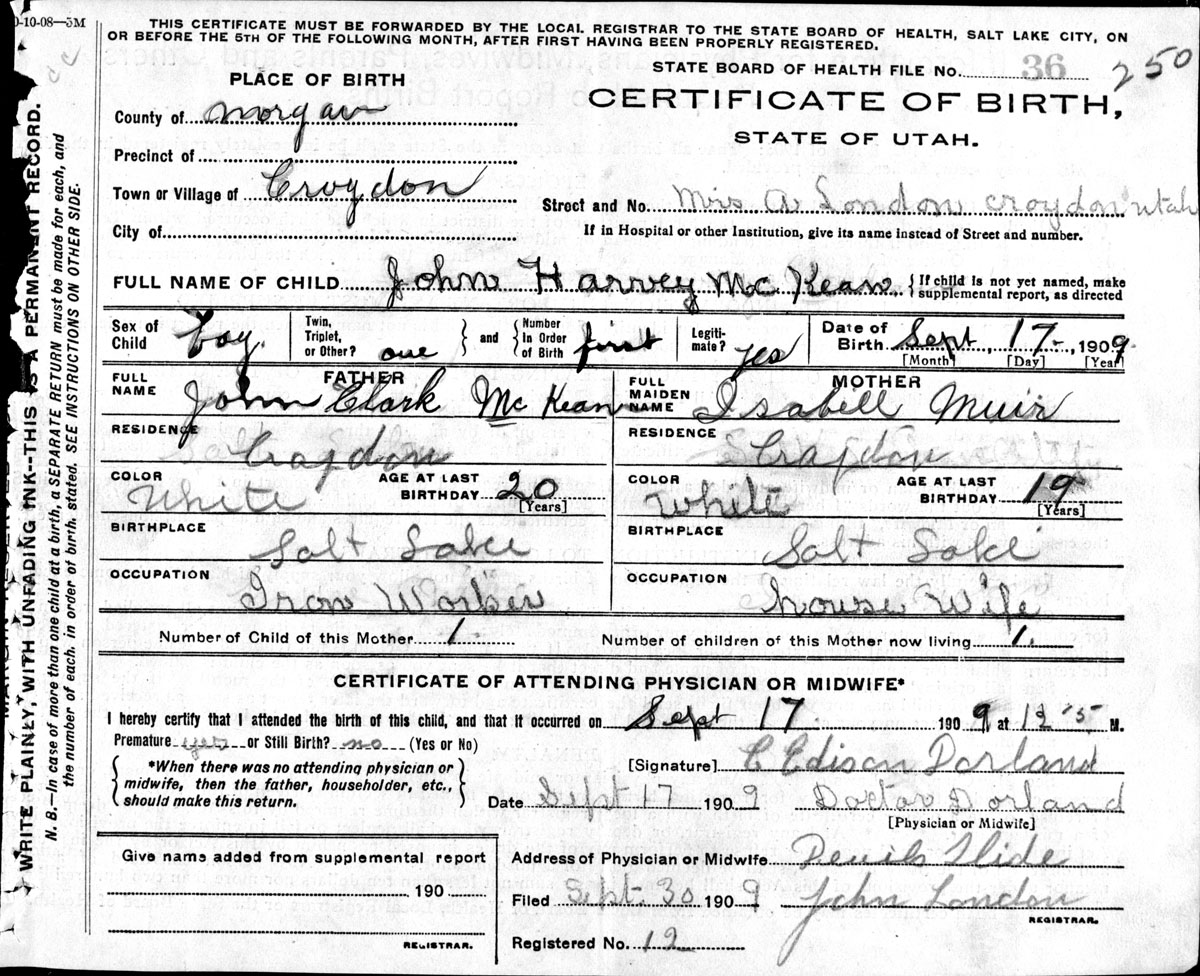 0-10-08—5M
THIS CERTIFICATE MUST BE FORWARDED BY THE LOCAL REGISTRAR TO THE STATE BOARD OF HEALTH, SALT LAKE CITY, ON
OR BEFORE THE 5TH OF THE FOLLOWING MONTH, AFTER FIRST HAVING BEEN PROPERLY REGISTERED.
PLACE OF BIRTH
STATE BOARD OF HEALTH FILE No. 36 250
County of Morgan
CERTIFICATE OF BIRTH,
STATE OF UTAH.
Precinct of
Town or Village of Croydon
Street and No. Mrs A London Croydon Utah
City of
If in Hospital or other Institution, give its name instead of Street and number.
FULL NAME OF CHILD John Harvey McKean {If child is not yet named, make
supplemental report, as directed
Sex of Child boy Twin, Triplet, or Other? one } and { Number In Order of Birth first Legiti-mate? yes Date of Birth Sept, 17-, 1909
[Month] [Day] [Year]
FATHER
FULL NAME John Clark McKean
MOTHER
FULL MAIDEN NAME Isabell Muir
RESIDENCE Craydon
RESIDENCE Craydon
COLOR White AGE AT LAST BIRTHDAY 20
[Years]
COLOR White AGE AT LAST BIRTHDAY 19
[Years]
BIRTHPLACE Salt Lake
BIRTHPLACE Salt Lake
OCCUPATION Iron Worker
OCCUPATION house Wife
Number of Child of this Mother 1. Number of children of this Mother now living 1.
CERTIFICATE OF ATTENDING PHYSICIAN OR MIDWIFE*
I hereby certify that I attended the birth of this child, and that it occurred on Sept 17 1909 at M.
Premature yes or Still Birth? no (Yes or No)
{ *When there was no attending physician or
midwife, then the father, householder, etc.,
should make this return. }
[Signature] C Edison Dorland
Date Sept 17 1909 Doctor Dorland
[Physician or Midwife]
Give name added from supplemental report
190
REGISTRAR.
Address of Physician or Midwife Devils Slide
Filed Sept. 30 1909 John London
REGISTRAR.
Registered No. 12
WRITE PLAINLY, WITH UNFADING INK—THIS IS A PERMANENT RECORD.
N. B.—In case of more than one child at a birth, a SEPARATE RETURN must be made for each, and
the number of each, in order of birth, stated. SEE INSTRUCTIONS ON OTHER SIDE.